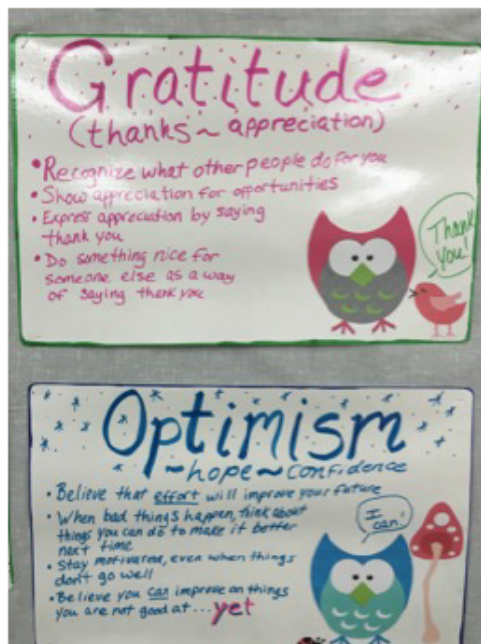 Gratitude
(thanks ~ appreciation)
• Recognize what other people do for you
• Show appreciation for opportunities
• Express appreciation by saying
thank you
• Do something nice for
someone else as a way
of saying thank you
Thank
you!
Optimism
~hope~confidence
• Believe that effort will improve your future
• When bad things happen, think about
things you can do to make it better
next time
• Stay motivated, even when things
don't go well
• Believe you can improve on things
you are not good at... yet
I
can!